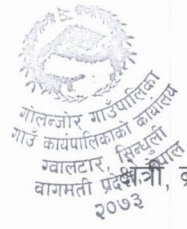 गोलन्जोर गाउँपालिका
गाउँ कार्यपालिकाको कार्यालय
ग्वालटार, सिन्धुली
वागमती प्रदेश, नेपाल
२०७३
क्षेत्री,